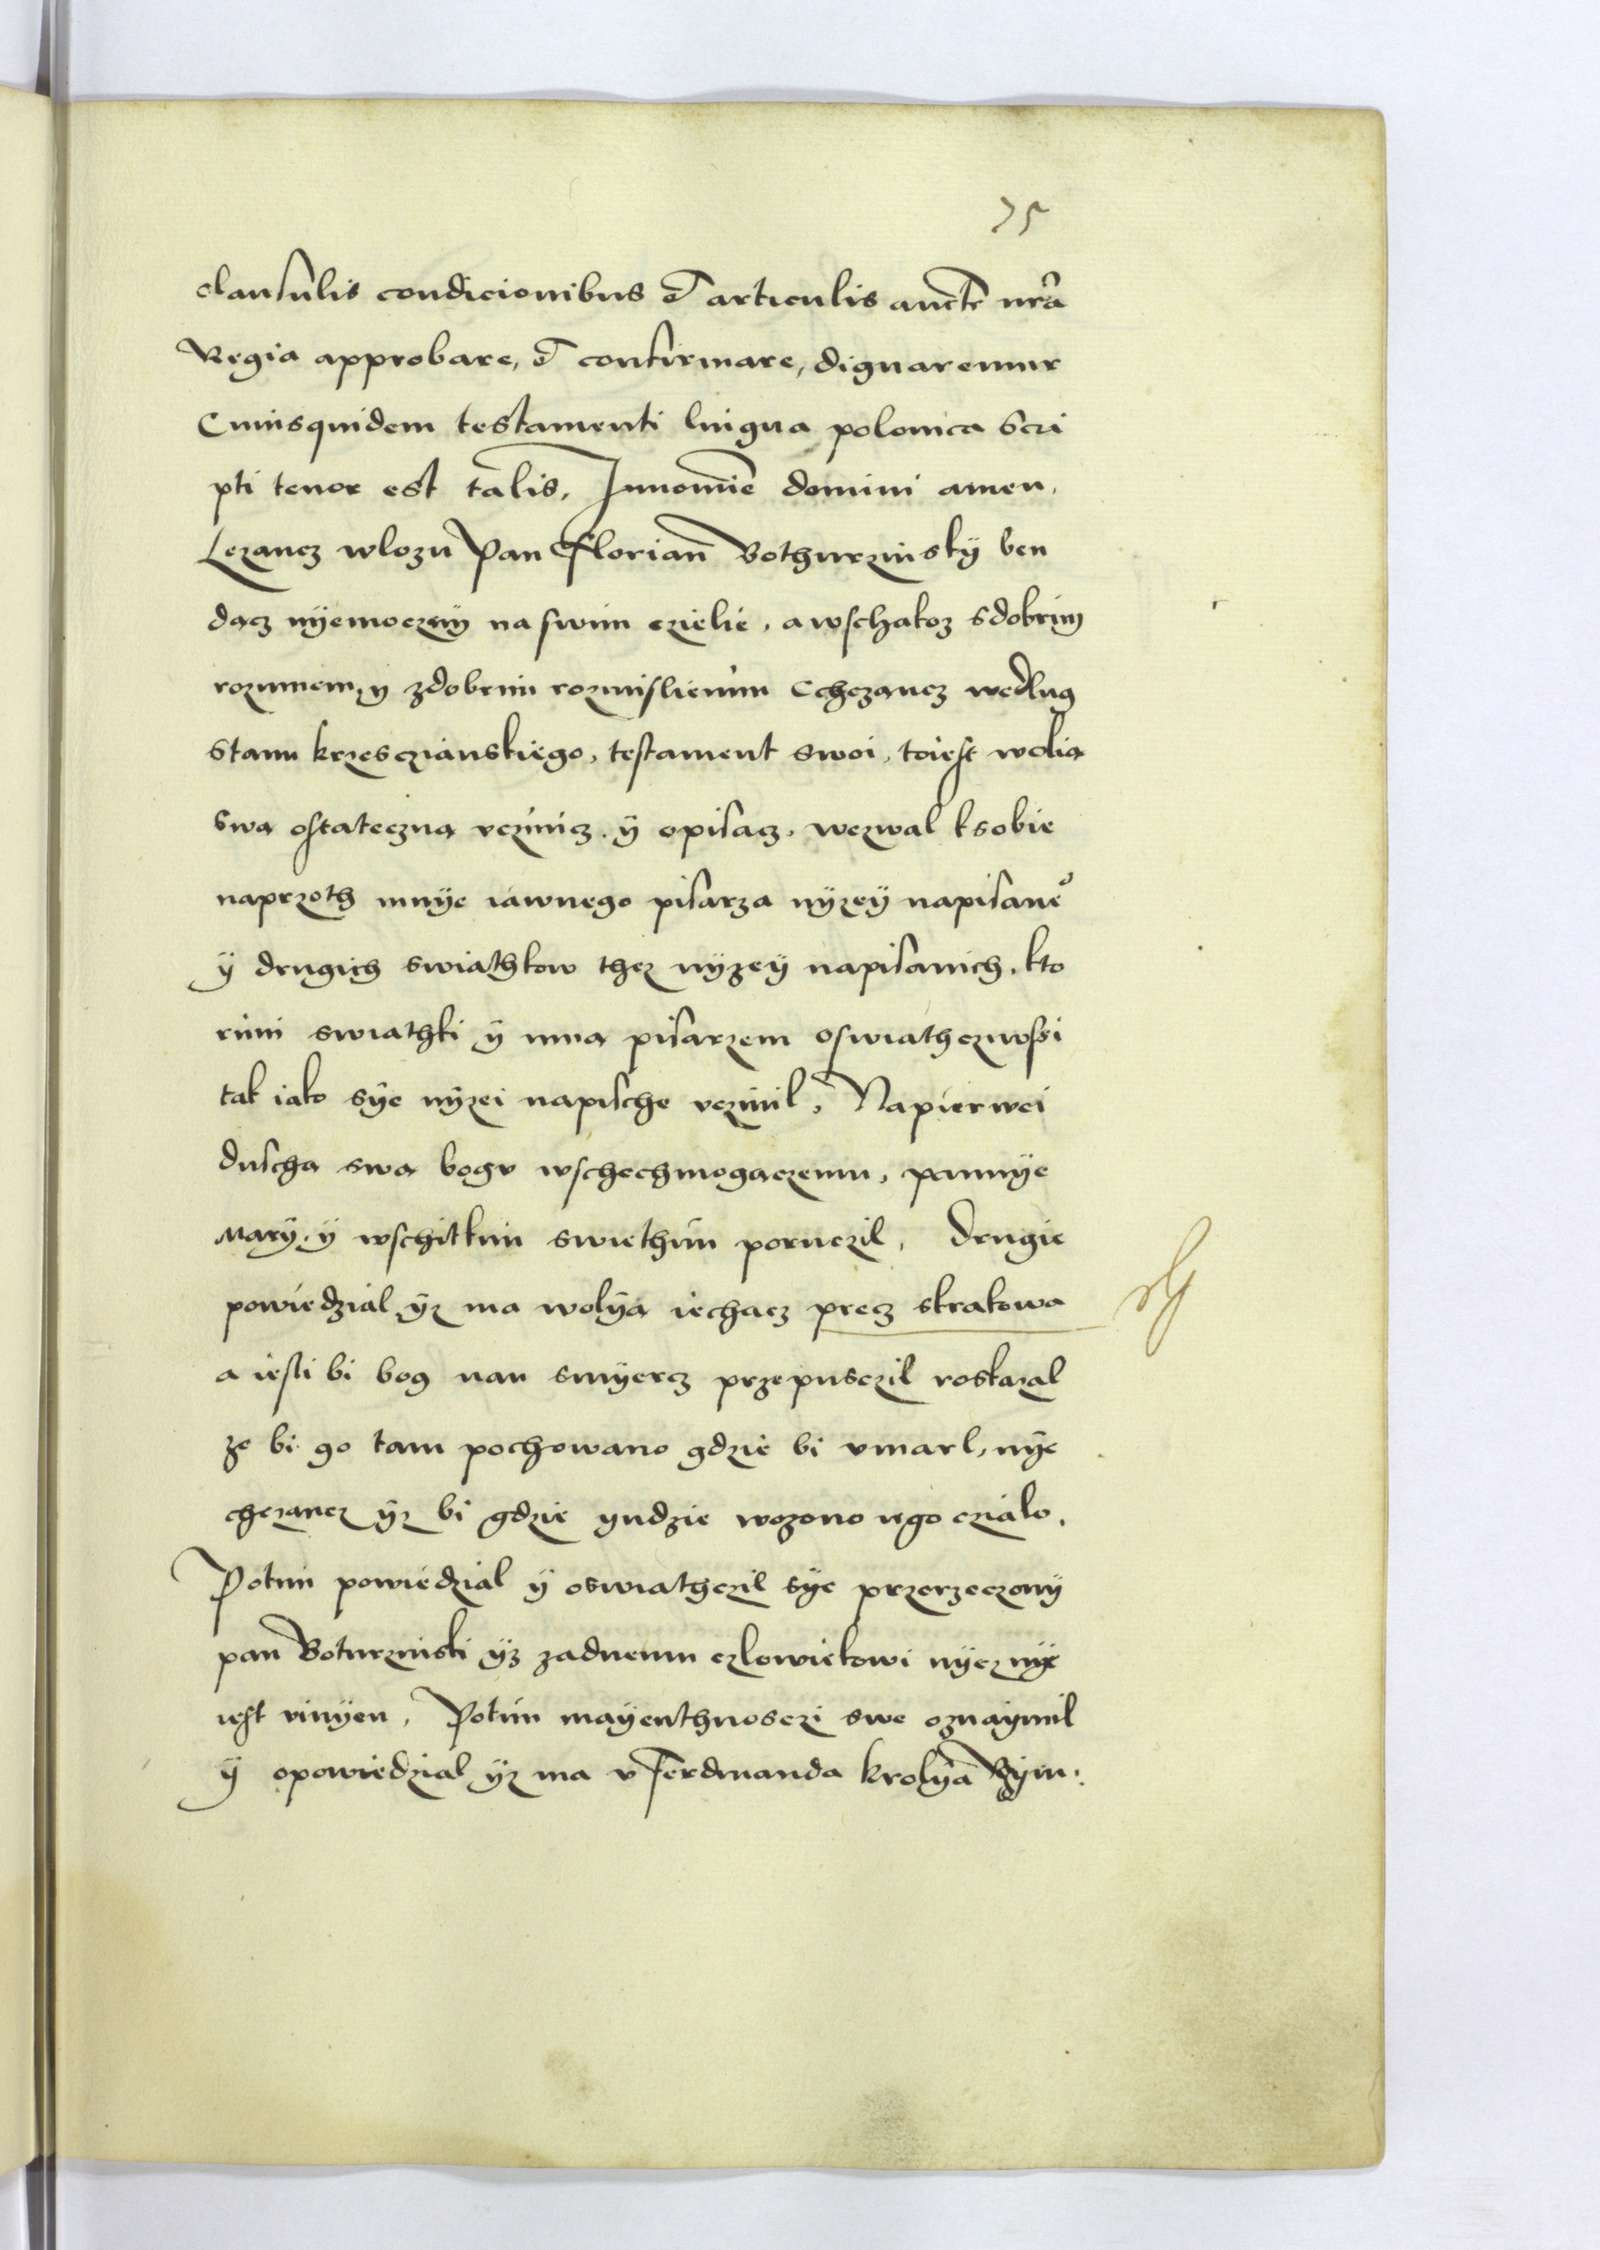 75
clausulis condicionibus et articulis auctte nrã
Regia approbare, et confirmare, dignaremur
Cuiusquidem testamenti lingua polonica scri
pti tenor est talis, Innomie domini amen,
Lezancz wlozu Pan Florian Bothurzinskÿ ben
dacz nÿemoczny na swim czielie, a wschakoz sdobrim
rozumem, y zdobrim rozmisslienim Cchczancz wedlug
stanu krzesczianskiego, testament swoi, toiest wolią
swą ostateczną vczinicz. ÿ opisacz, wezwal ksobie
naprzoth mnÿe iawnego pisarza nÿzeÿ napisane͛
ÿ drugich swiathkow thez nÿzeÿ napisanich, kto
rimi swiathki ÿ mną pisarzem oswiatczwssi
tak iako sÿe nÿzei napische vczinil, Napierwei
duschą swą bogu wschechmogączemu, pannÿe
Marÿ, ÿ wschitkim swiethim poruczil, drugie
powiedzial ÿz ma wolÿą iechacz precz skrakowa
a iesli bi bog nan smÿercz przepusczil roskazal
ze bi go tam pochowano gdzie bi vmarl, nÿe
chczancz ÿz bi gdzie yndzie wozono iego czialo,
Potim powiedzial ÿ oswiathczil sÿe przerzeczonÿ
pan Boturzinski ÿz zadnemu czlowiekowi nÿcz nÿe
iest vinÿen, Potim maÿenthnosczi swe oznaÿmil
ÿ opowiedzial ÿz ma v Ferdinanda krolÿa Rzim: